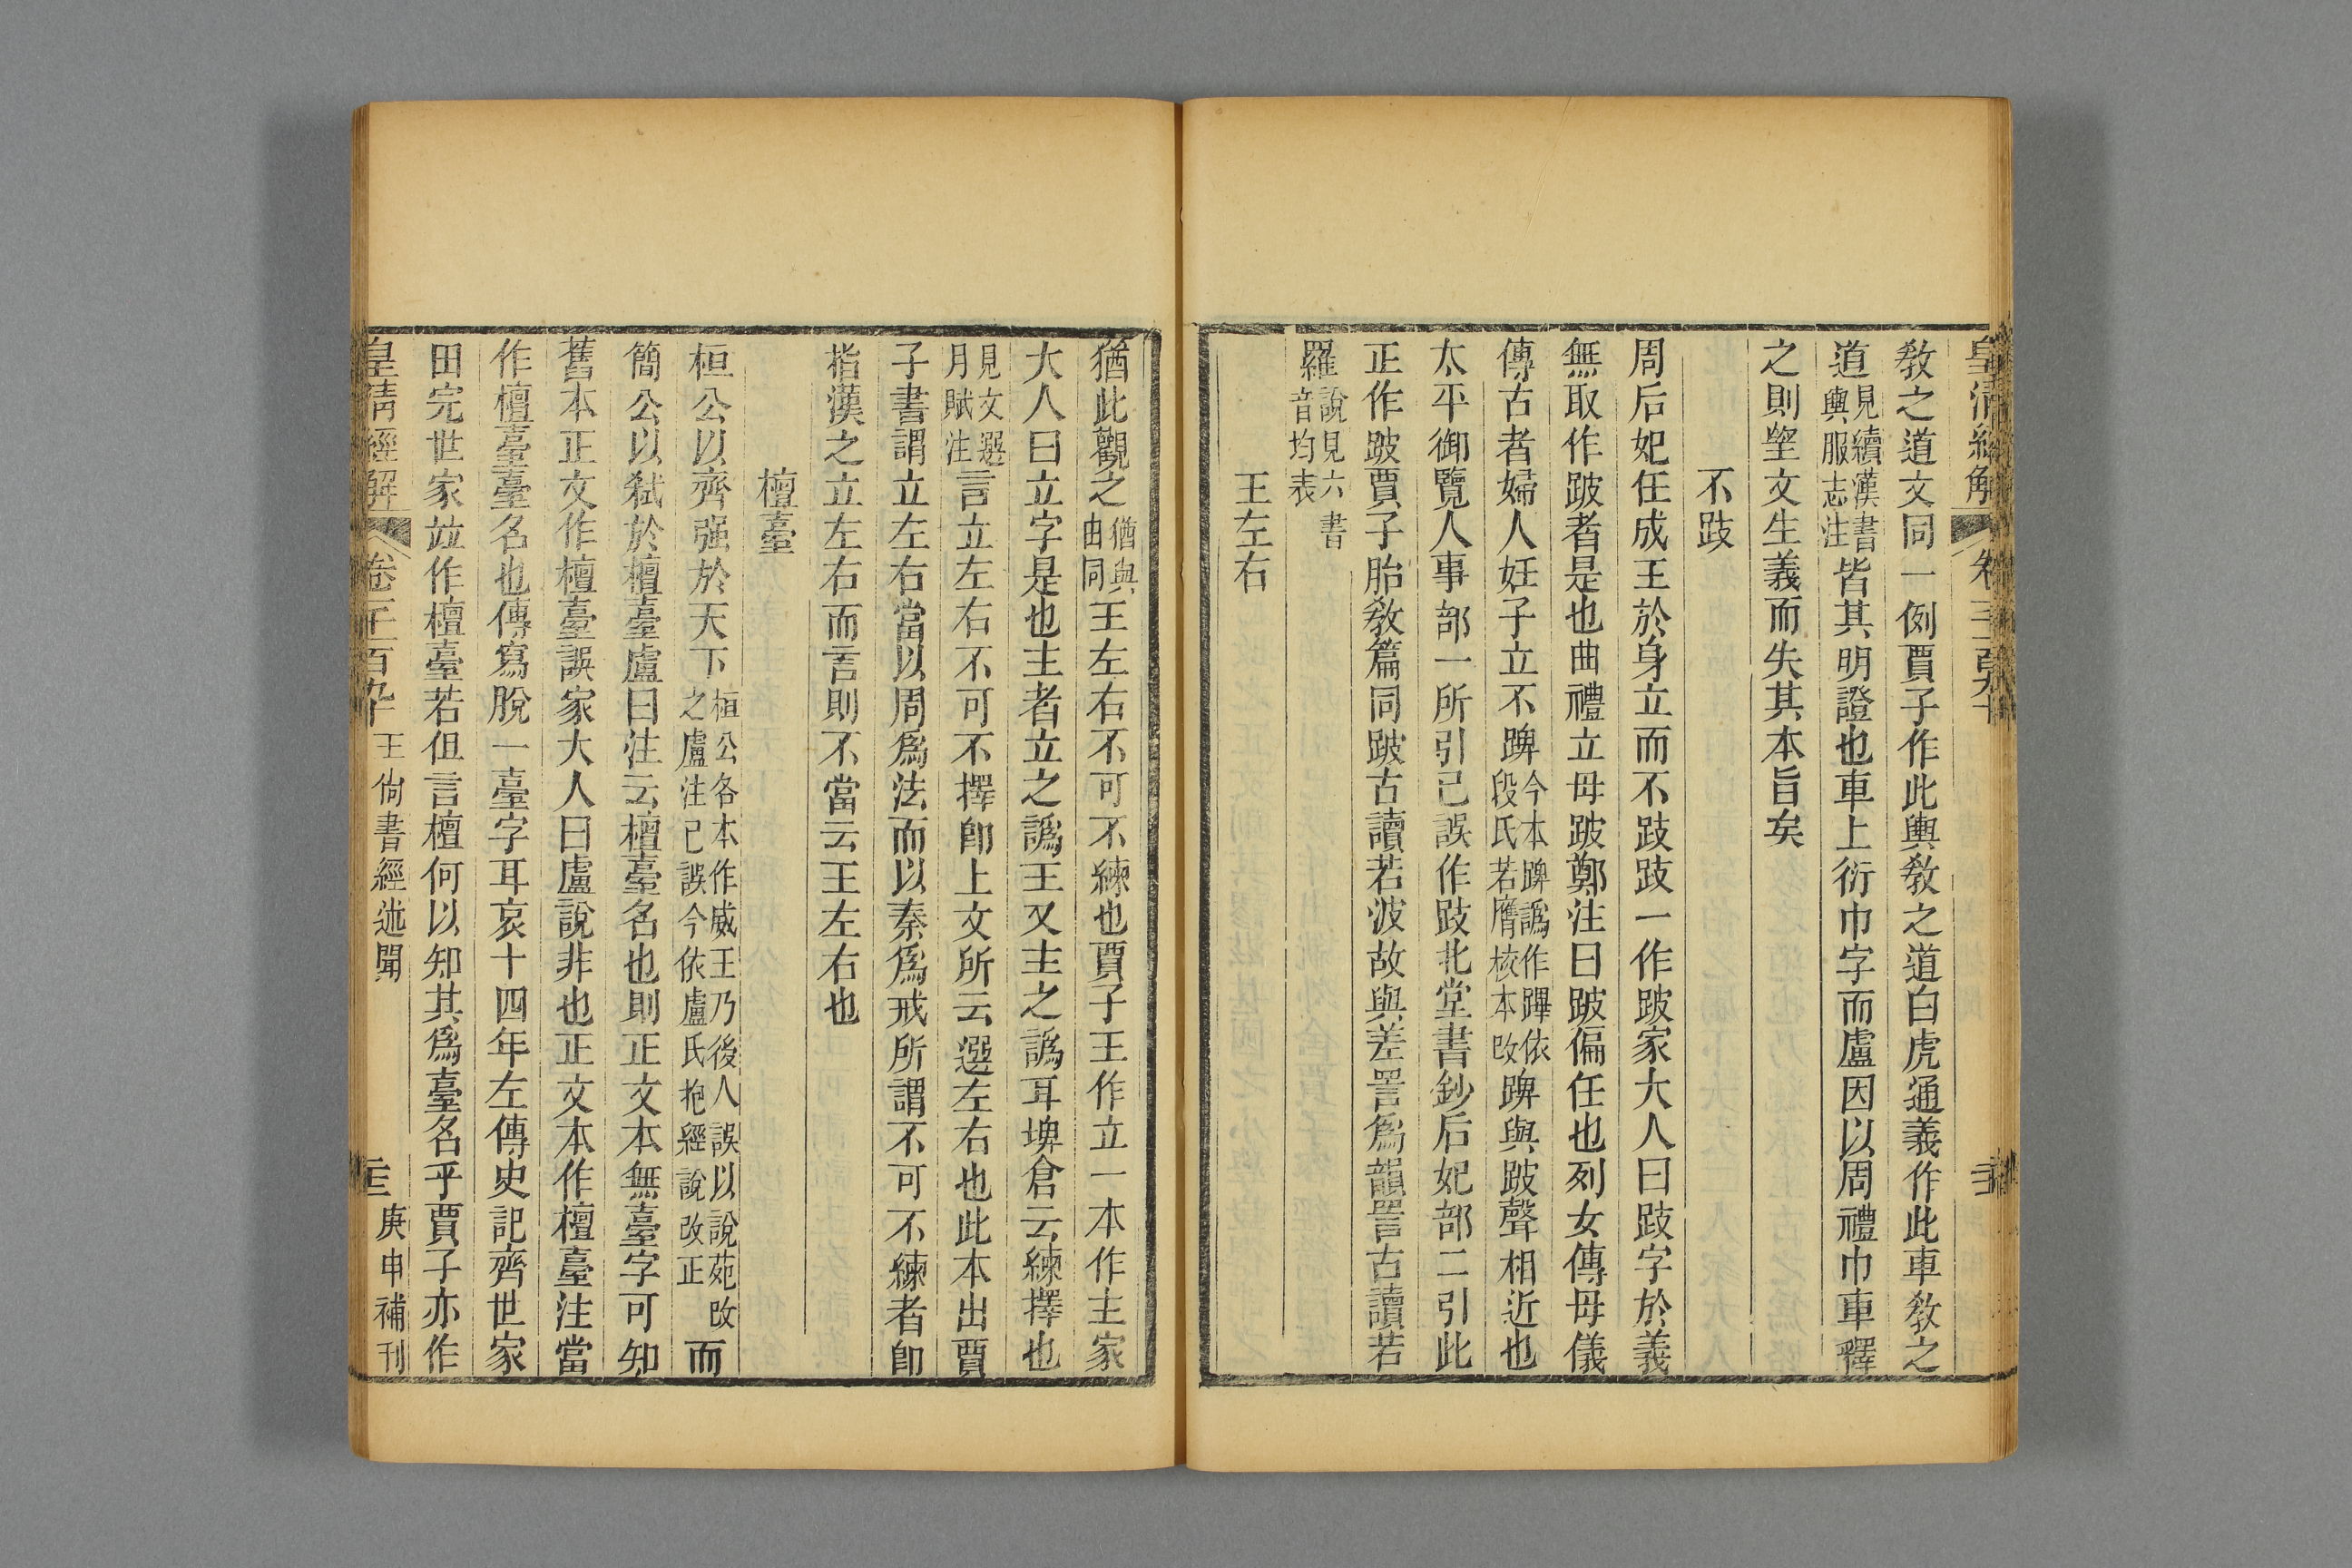 皇清經解
教之道文同一例賈子作此輿教之道白虎通義作此車教之
道見續漢書輿服志注皆其明證也車上衍巾字而盧因以周禮巾車釋
之則望文生義而失其本旨矣
不跂
周后妃任成王於身立而不跂跂一作跛家大人曰跂字於義
無取作跛者是也曲禮立毋跛鄭注曰跛偏任也列女傳母儀
傳古者婦人妊子立不踔今本踔譌作蹕依段氏若膺校本改踔與跛聲相近也
太平御覽人事部一所引已誤作跂北堂書鈔后妃部二引此
正作跛賈子胎教篇同跛古讀若波故與差詈爲韻詈古讀若
羅說見六書音均表
王左右
猶此觀之猶與由同王左右不可不練也賈子王作立一本作主家
大人曰立字是也主者立之譌王又主之譌耳埤倉云練擇也
見文選月賦注言立左右不可不擇卽上文所云選左右也此本出賈
子書謂立左右當以周爲法而以秦爲戒所謂不可不練者卽
指漢之立左右而言則不當云王左右也
檀臺
桓公以齊强於天下桓公各本作威王乃後人誤以說苑改之盧注已誤今依盧氏抱經說改正而
簡公以弑於檀臺盧曰注云檀臺名也則正文本無臺字可知
舊本正文作檀臺誤家大人曰盧說非也正文本作檀臺注當
作檀臺臺名也傳寫脫一臺字耳哀十四年左傳史記齊世家
田完世家竝作檀臺若但言檀何以知其爲臺名乎賈子亦作
皇清經解 卷 王尙書經述聞 庚申補刊